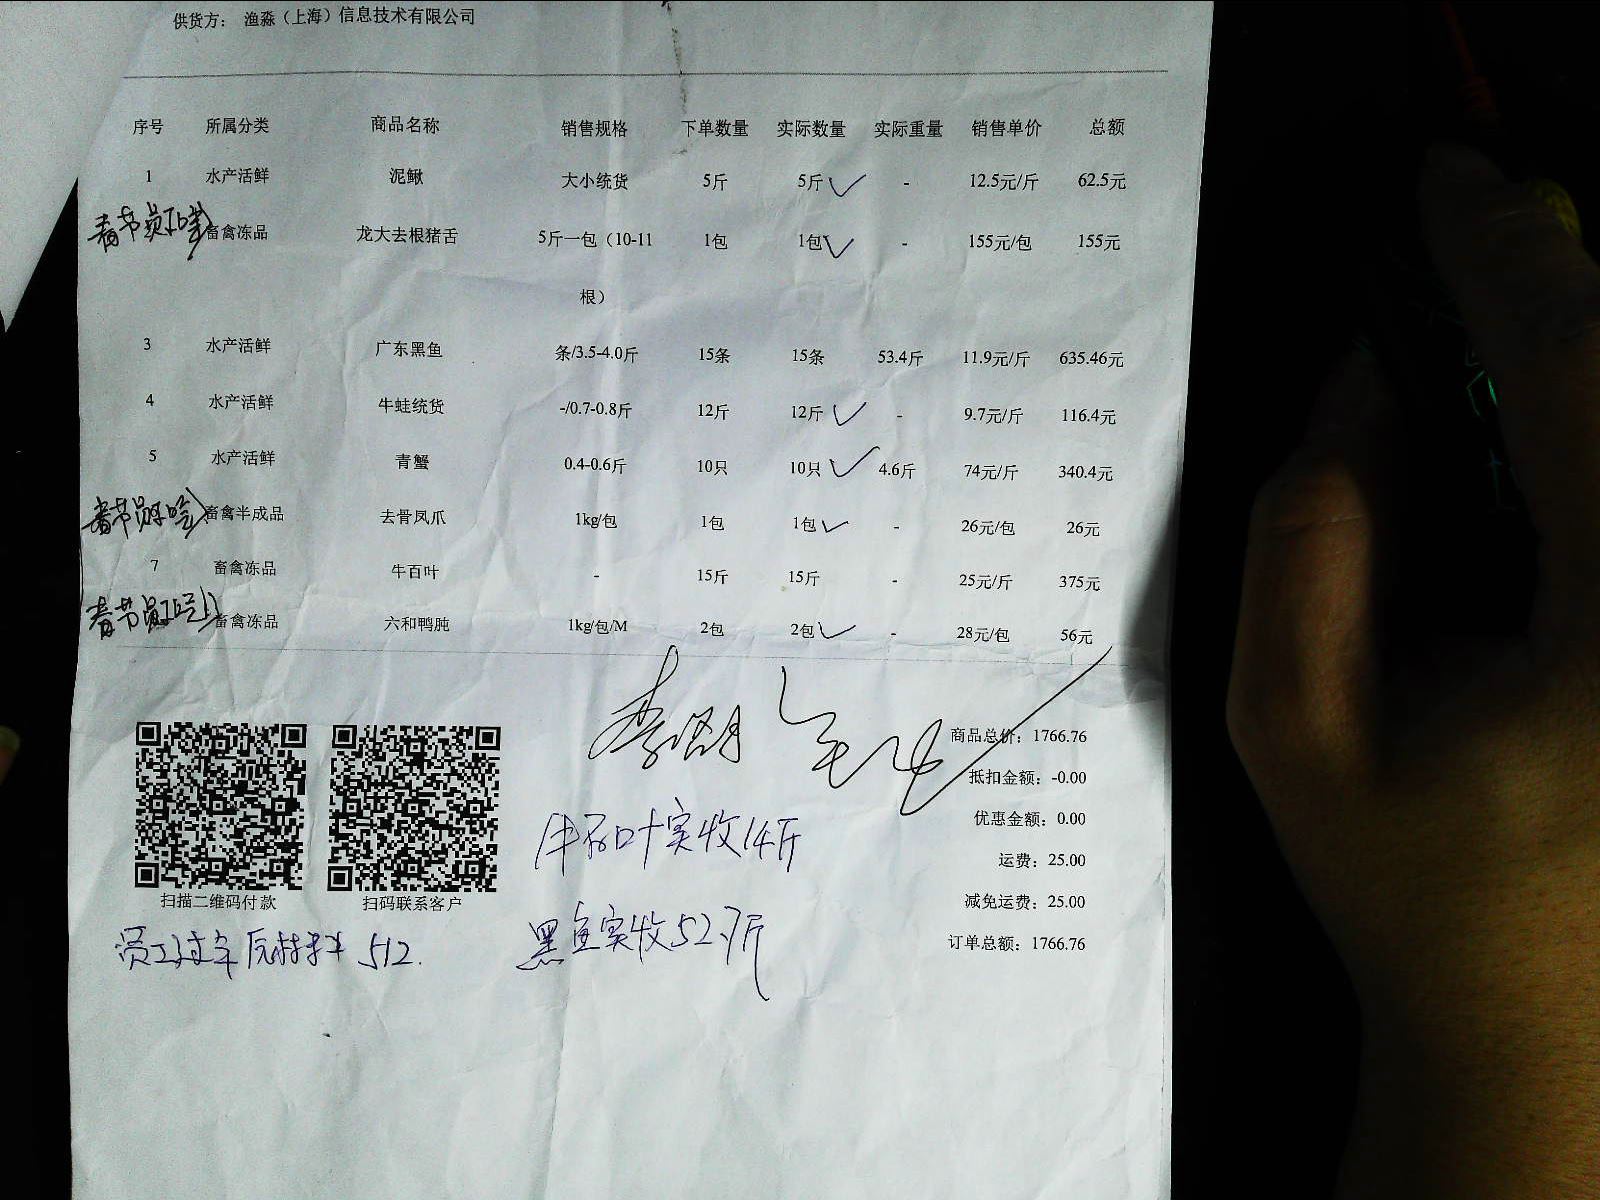 供货方： 渔淼（上海）信息技术有限公司
序号 所属分类 商品名称 销售规格 下单数量 实际数量 实际重量 销售单价 总额
1 水产活鲜 泥鳅 大小统货 5斤 5斤 - 12.5元/斤 62.5元
春节员工吃 畜禽冻品 龙大去根猪舌 5斤一包（10-11 1包 1包 - 155元/包 155元
根）
3 水产活鲜 广东黑鱼 条/3.5-4.0斤 15条 15条 53.4斤 11.9元/斤 635.46元
4 水产活鲜 牛蛙统货 -/0.7-0.8斤 12斤 12斤 - 9.7元/斤 116.4元
5 水产活鲜 青蟹 0.4-0.6斤 10只 10只 4.6斤 74元/斤 340.4元
春节员工吃 畜禽半成品 去骨凤爪 1kg/包 1包 1包 - 26元/包 26元
7 畜禽冻品 牛百叶 - 15斤 15斤 - 25元/斤 375元
春节员工吃 畜禽冻品 六和鸭肫 1kg/包/M 2包 2包 - 28元/包 56元
商品总价：1766.76
抵扣金额：-0.00
优惠金额：0.00
运费：25.00
减免运费：25.00
订单总额：1766.76
牛百叶实收14斤
黑鱼实收52.7斤
扫描二维码付款 扫码联系客户
员工过年原材料 512.